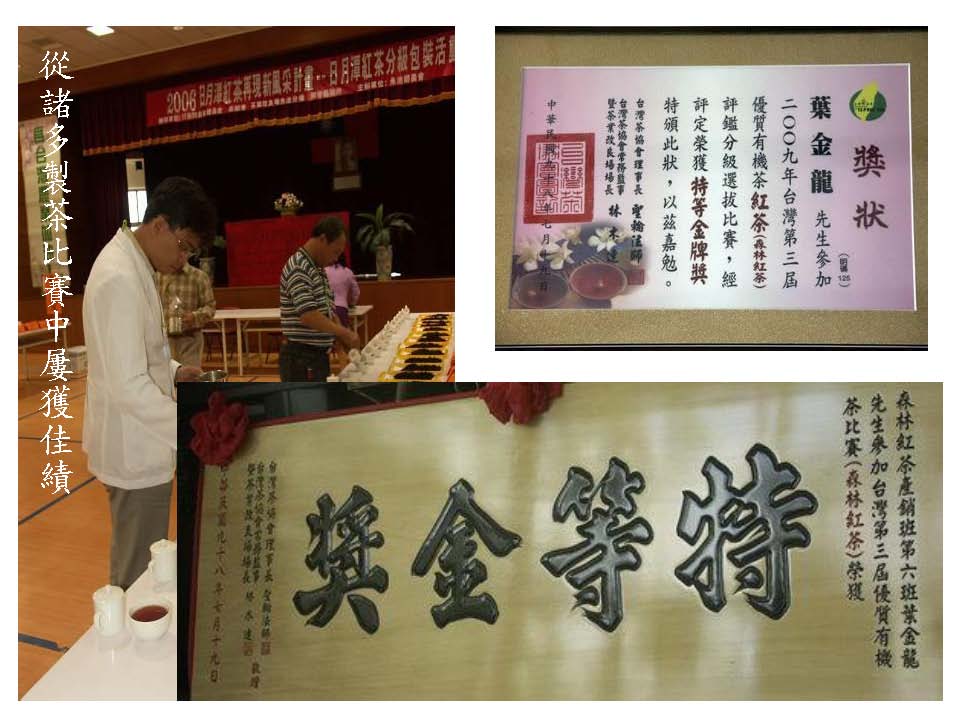 從諸多製茶比賽中屢獲佳績
2006日月潭紅茶再現新風采計畫--日月潭紅茶分級包裝活動
獎狀
(明碼125)
葉金龍 先生參加
二○○九年台灣第三屆
優質有機茶紅茶(森林紅茶)
評鑑分級選拔比賽,經
評定榮獲特等金牌獎
特頒此狀,以茲嘉勉。
台灣茶協會理事長 聖輪法師
台灣茶協會常務監事
暨茶業改良場場長 林木連
中華民國九十八年七月十九日
森林紅茶產銷班第六班葉金龍
先生參加台灣第三屆優質有機
茶比賽(森林紅茶)榮獲
特等金獎
台灣茶協會理事長 聖輪法師
台灣茶協會常務監事
暨茶業改良場場長 林木連 敬贈
中華民國九十八年七月十九日